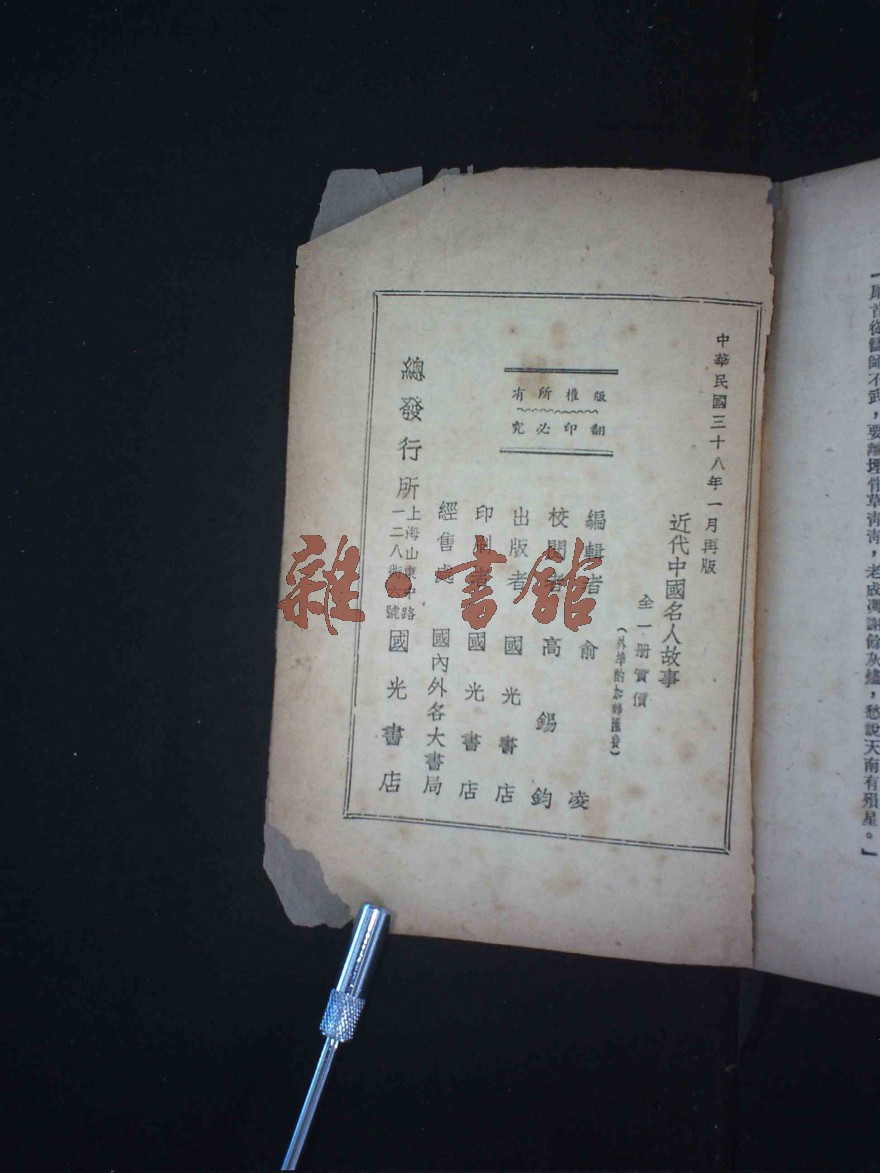 「厲首從醫師不武，要離埋骨草青青，老成凋謝餘灰燼，愁說天南有殞星。」
中華民國三十八年一月再版
近代中國名人故事
全一册實價
（外埠酌加郵匯費）
版權所有
翻印必究
編輯者 俞凌
校閱者 高錫鈞
出版者 國光書店
印刷者 國光書店
經售處 國內外各大書局
總發行所 上海山東中路一二八衖六號 國光書店
雜·書館